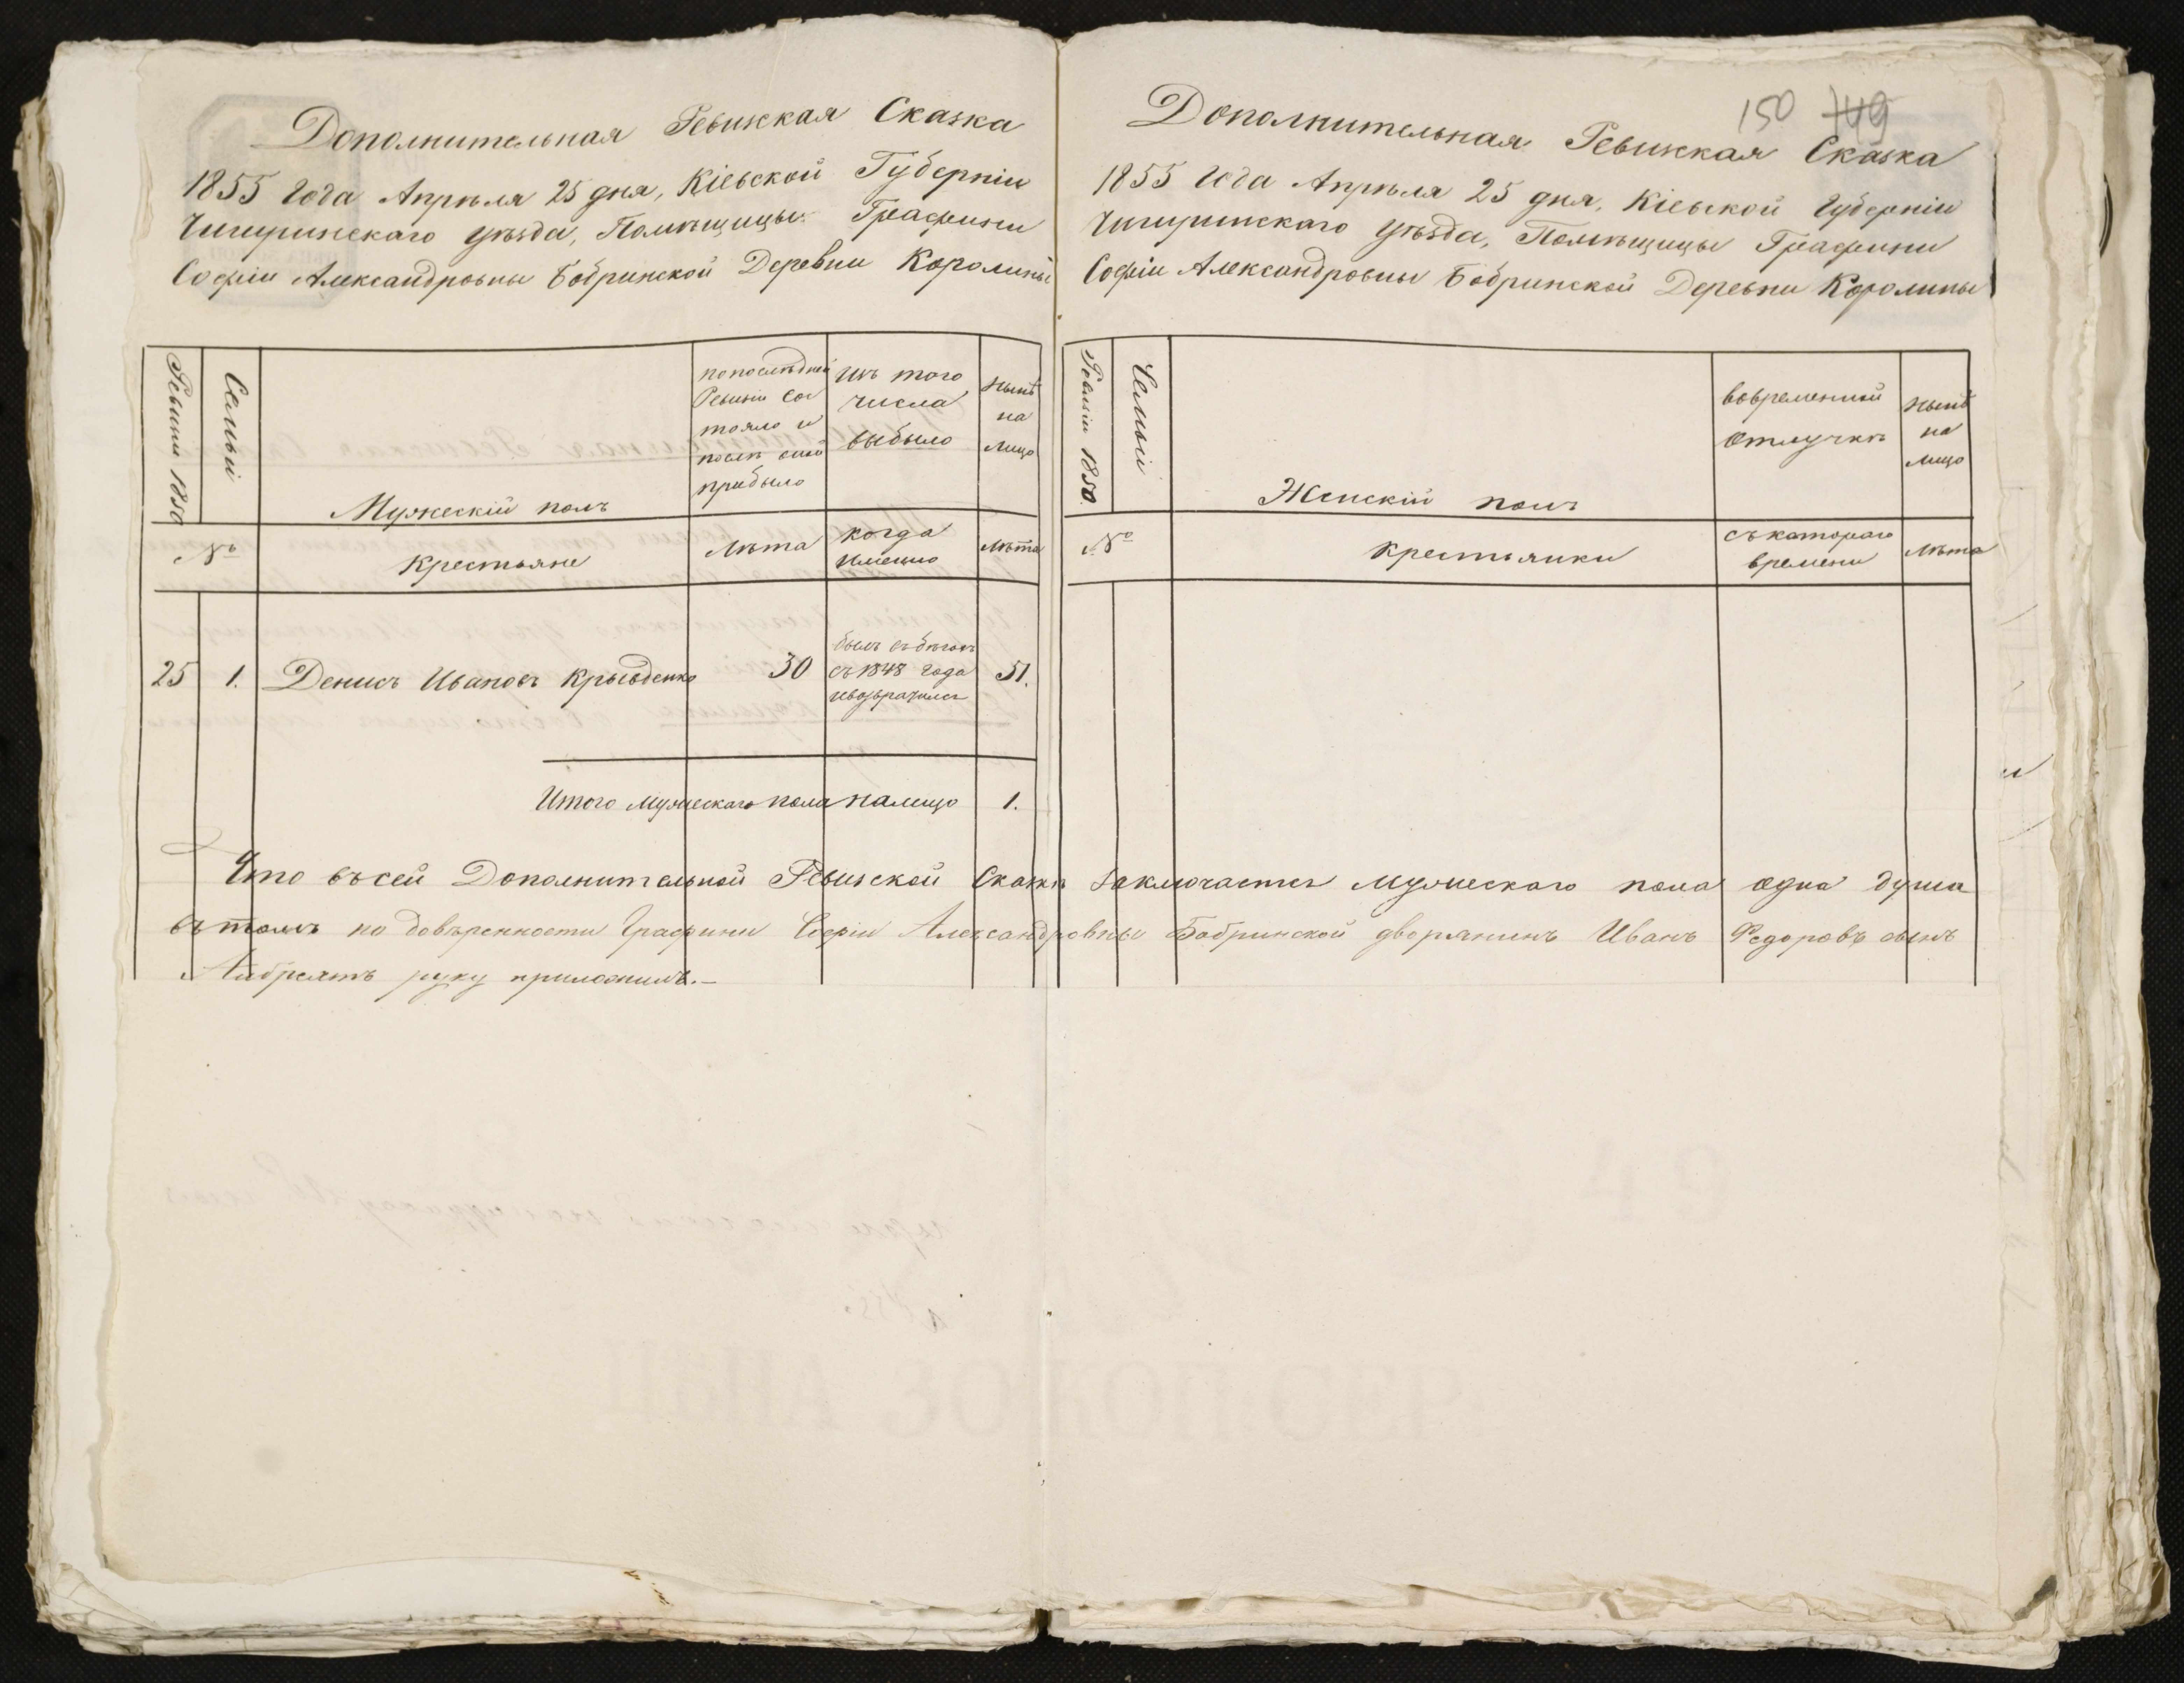 Дополнительная Ревизская Сказка
1855 Года Апрѣля 25 дня, Кіевской Губерніи
Чигиринскаго уѣзда, Помѣщицы Графини
Софіи Александровны Бобринской Деревни Королины
Ревизіи 1850
Семьи
Мужескій полъ
попослѣдней
Ревизіи сос
тояло и
послѣ оной
прибыло
Изъ того
числа
выбыло
Нынѣ
на
лицо
№
Крестьяне
Лѣта
когда
именно
Лѣта
25
1.
Денисъ Ивановъ Крывденко
30
былъ въбѣгахъ
съ 1848 года
и возвратился
51.
Итого мужескаго пола налицо 1.
150 149
Дополнительная Ревизкая Сказка
1855 Года Апрѣля 25 дня, Кіевской Губерніи
Чигиринскаго уѣзда, Помѣщицы Графини
Софіи Александровны Бобринской Деревни Королины
Ревизіи 1850.
Семьи
Женскій полъ
вовременной
отлучкѣ
Нынѣ
на
лицо
№
Крестьянки
съ котораго
времени
Лѣта
Что въсей Дополнительной Ревизской Сказкѣ заключается мужескаго пола одна душа
въ томъ по довѣренности Графини Софіи Александровны Бобринской дворянинъ Иванъ Федоровъ сынъ
руку приложилъ.—